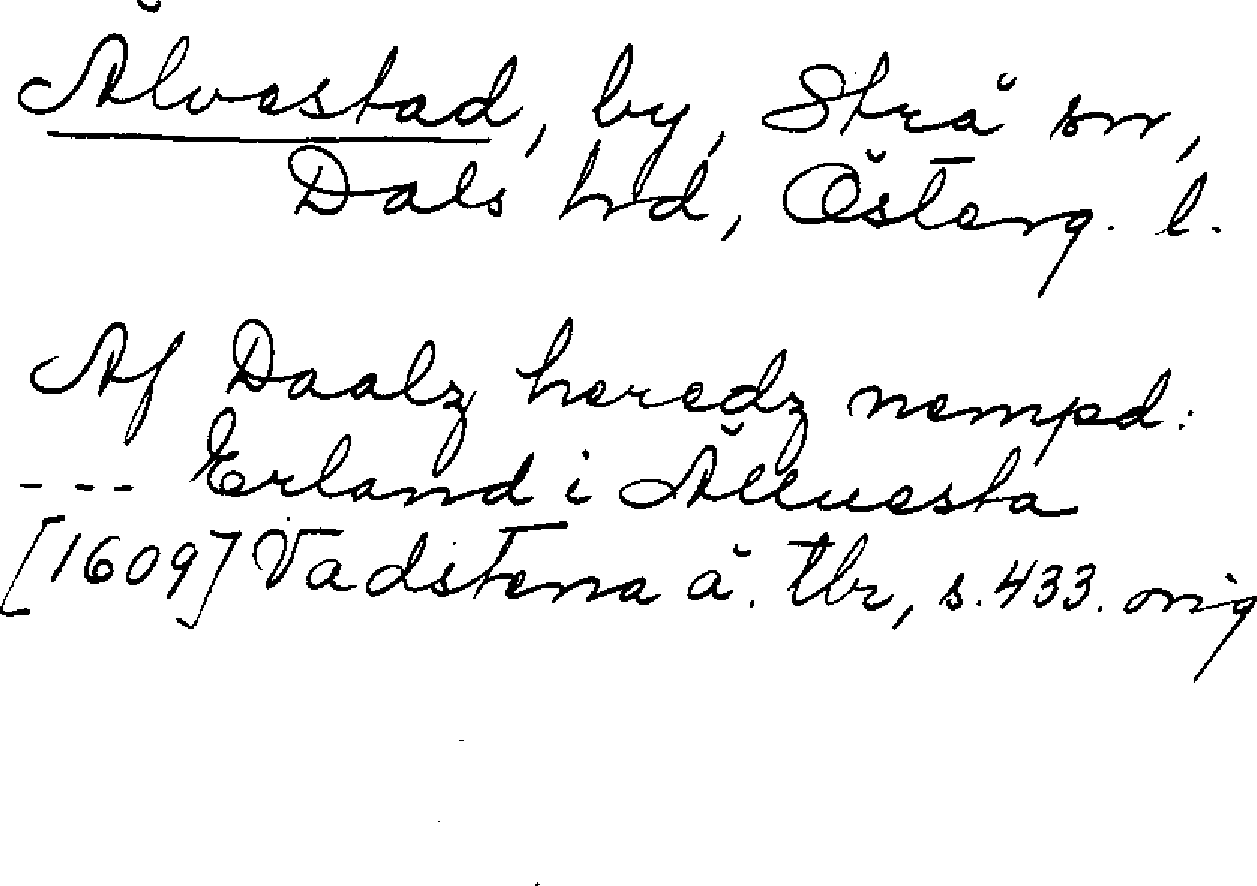 Älvestad, by, Strå sn,
Dals hd, Österg. l.
Af Daalz heredz nempd:
--- Erland i Ällvesta
[1609] Vadstena ä. tbr, s. 433. orig